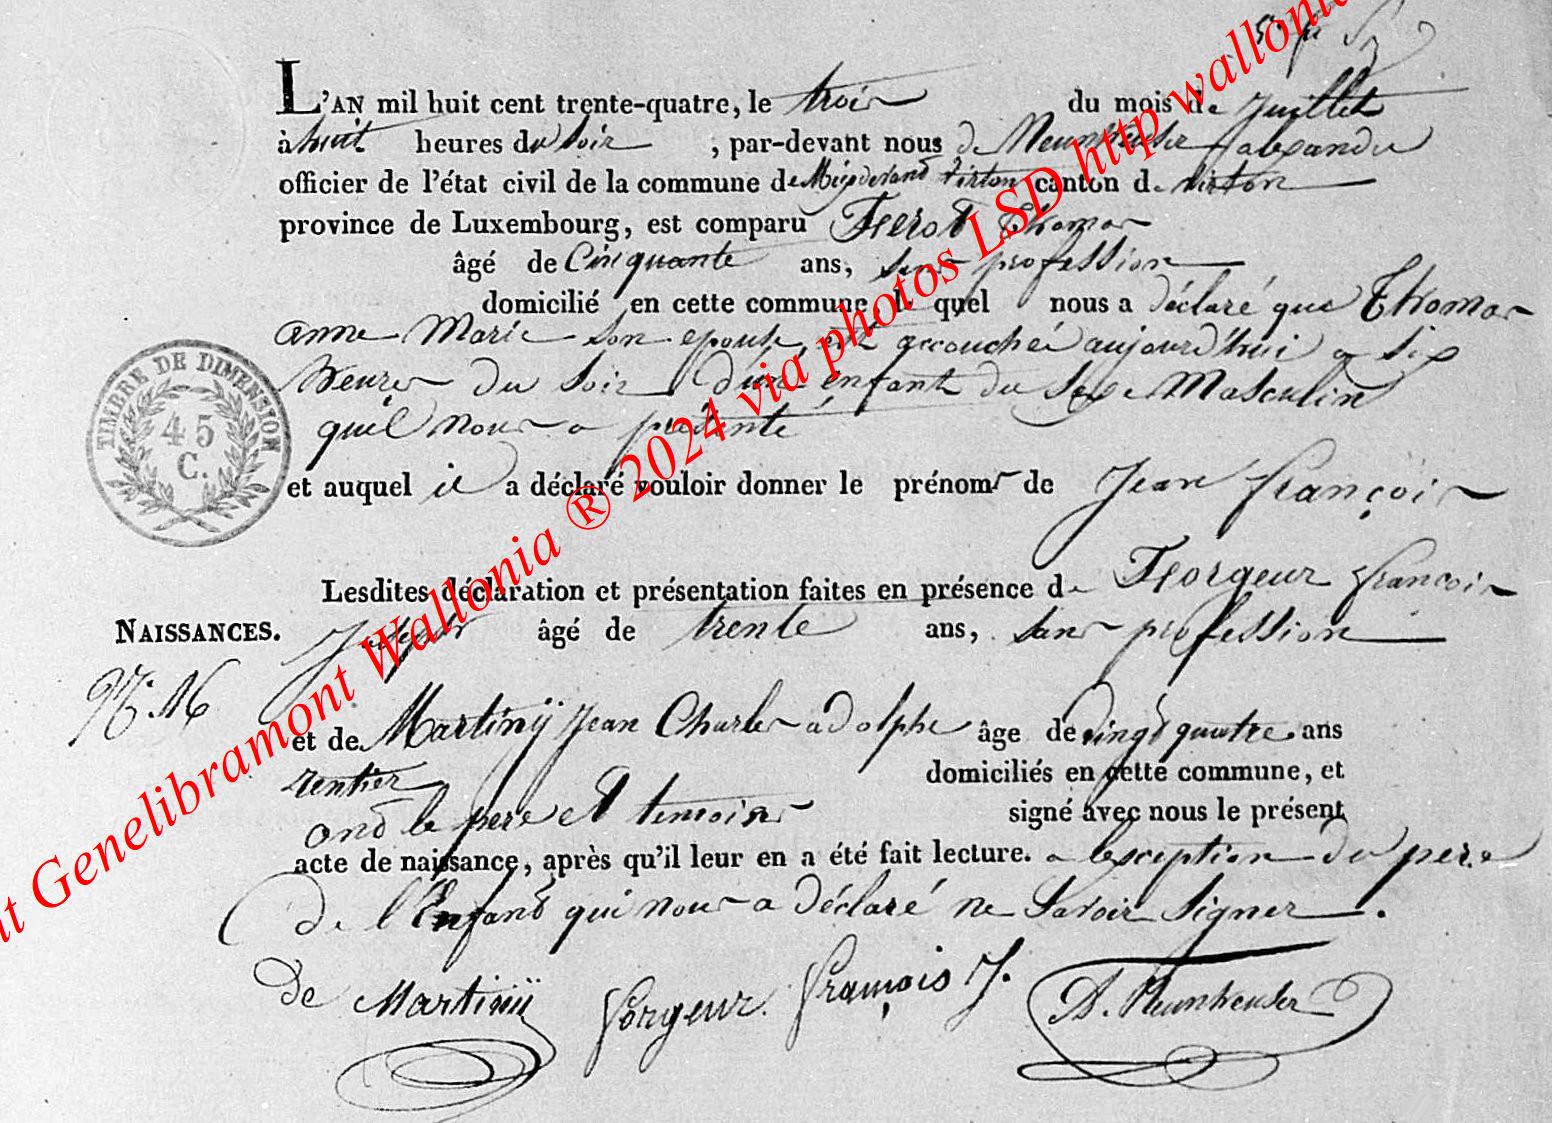 L'AN mil huit cent trente-quatre, le trois du mois de Juillet
à huit heures du soir, par-devant nous de Meunkeuser alexandre
officier de l'état civil de la commune de virton canton de virton
province de Luxembourg, est comparu Thomas
âgé de Cinquante ans, sans profession
domicilié en cette commune, le quel nous a déclaré que Thomas
anne Marie son epouse est accouchée aujourd'hui a six
heures du soir d'un enfant du sexe Masculin
quil nous a présenté
et auquel il a déclaré vouloir donner le prénoms de Jean François
Lesdites déclaration et présentation faites en présence de Forgeur françois
Joseph âgé de trente ans, sans profession
NAISSANCES.
N° 16
et de Martinÿ Jean Charles adolphe âge de vingt quatre ans
rentier domiciliés en cette commune, et
ont le pere et temoins signé avec nous le présent
acte de naissance, après qu'il leur en a été fait lecture. a lexception du pere
de l'Enfant qui nous a déclaré ne Savoir Signer.
de Martinÿ forgeur françois J. A. Meunkeuser
TIMBRE DE DIMENSION
45
C.
Genelibramont Wallonia ® 2024 via photos LSD http wallonie